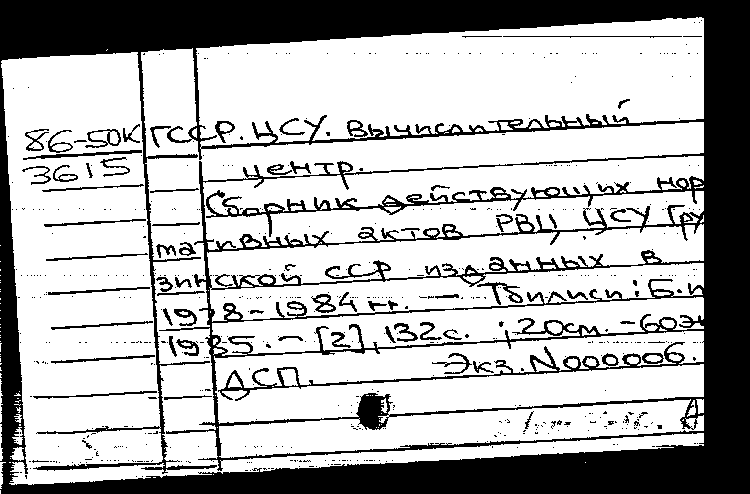 86-50К ГССР. ЦСУ. Вычислительный
3615 центр.
Сборник действующих нор
мативных актов РВЦ ЦСУ Гру
зинской ССР изданных в
1978-1984 гг. — Тбилиси: Б.и
1985. - [2], 132с. ; 20см. - 60эк
ДСП. Экз. N000006.